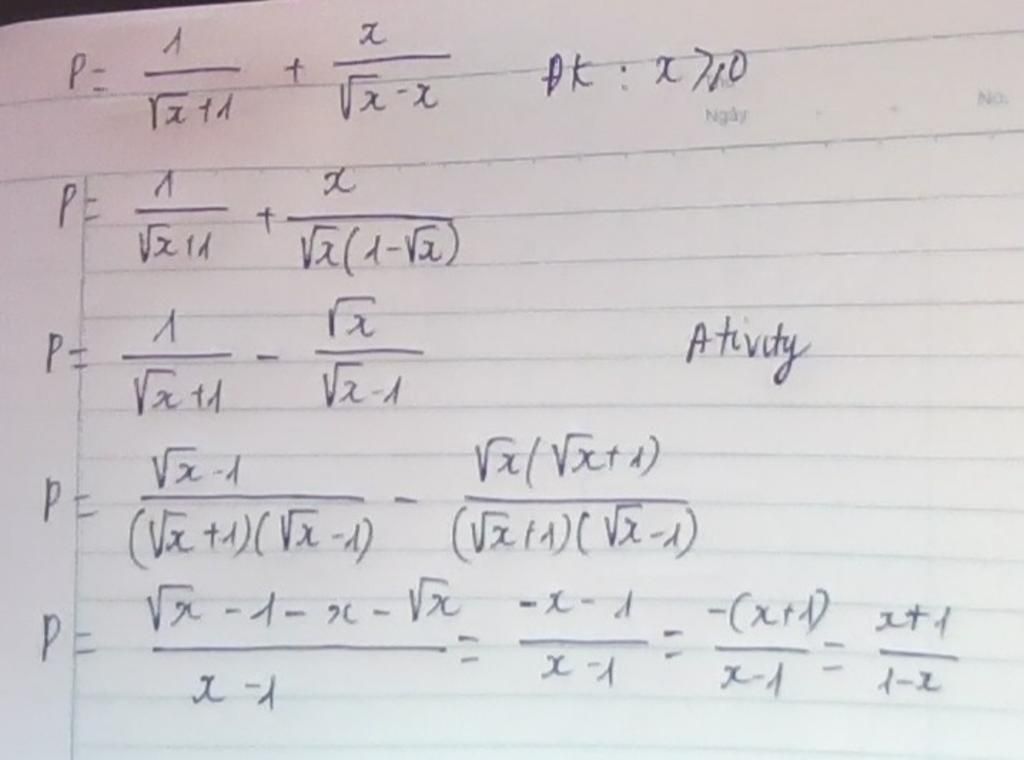 P = 1/(√x+1) + x/(√x-x) ĐK : x ⩾ 0
Ngày No.
P = 1/(√x+1) + x/(√x(1-√x))
P = 1/(√x+1) - √x/(√x-1) Ativity
P = (√x-1)/((√x+1)(√x-1)) - √x(√x+1)/((√x+1)(√x-1))
P = (√x-1-x-√x)/(x-1) = (-x-1)/(x-1) = -(x+1)/(x-1) = (x+1)/(1-x)